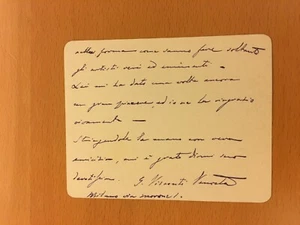 nella forma come sanno fare soltanto
gli artisti veri ed eminenti —
Lei mi ha dato una volta ancora
un gran piacere, ed io ne la ringrazio
vivamente —
Stringendole la mano con vera
amicizia, mi è grato dirmi suo
devotissimo G. Visconti Venosta
Milano